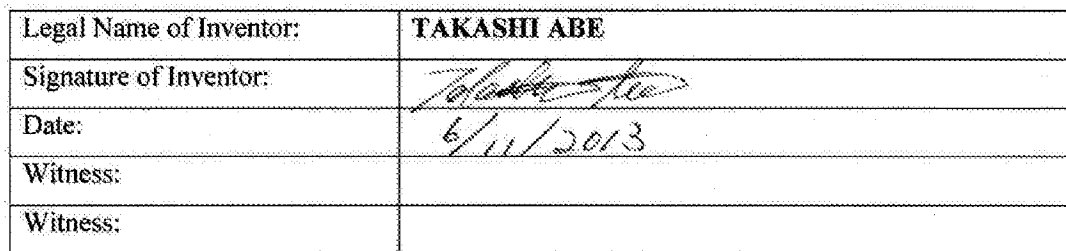 Legal Name of Inventor: TAKASHI ABE
Signature of Inventor: Takashi Abe
Date: 6/11/2013
Witness:
Witness: